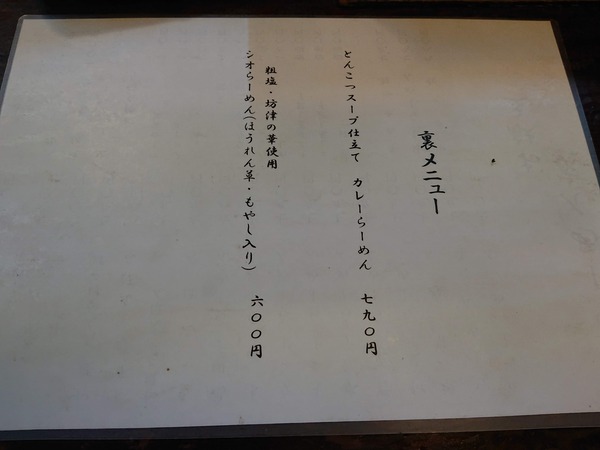 裏メニュー
とんこつスープ仕立て　カレーらーめん　七九〇円
粗塩・坊津の華使用
シオらーめん(ほうれん草・もやし入り)　六〇〇円